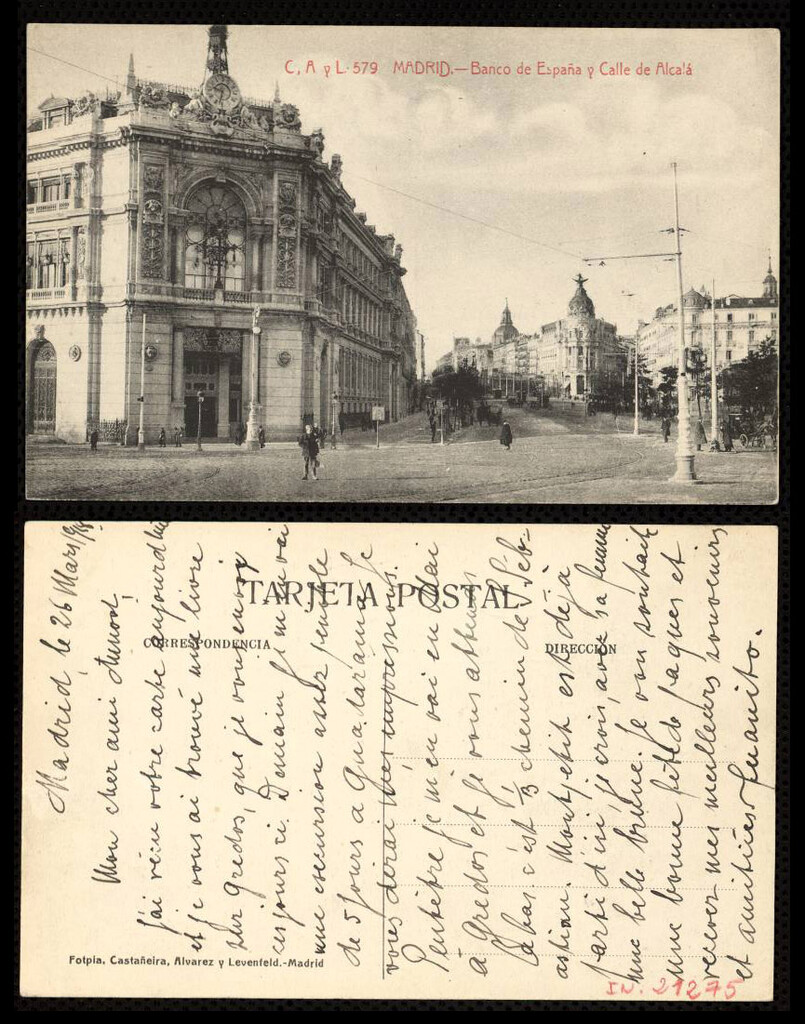 C, A y L-579 MADRID.—Banco de España y Calle de Alcalá
TARJETA POSTAL
CORRESPONDENCIA
DIRECCION
Madrid, le 26 Mars
Mon cher ami
j'ai reçu votre carte aujourd'hui
et je vous ai trouvé un livre
sur Gredos, que je vous envoy
ces jours ci. Demain je m'en vai
une excursion assez penible
de 5 jours a Guadarama. Je
vous dirai mes impressions.
Peutêtre je m'en vai en Mai
à Gredos et je vous attends
là bas, c'est chemin de Séb-
astian. Montjetit est dejà
parti d'ici, je crois, avec sa femme
une belle brune. Je vous souhait
une bonne fête de Paques et
recever mes meilleurs souvenirs
et amitiées. Juanito.
Fotpia, Castañeira, Alvarez y Levenfeld.-Madrid
IN. 21275